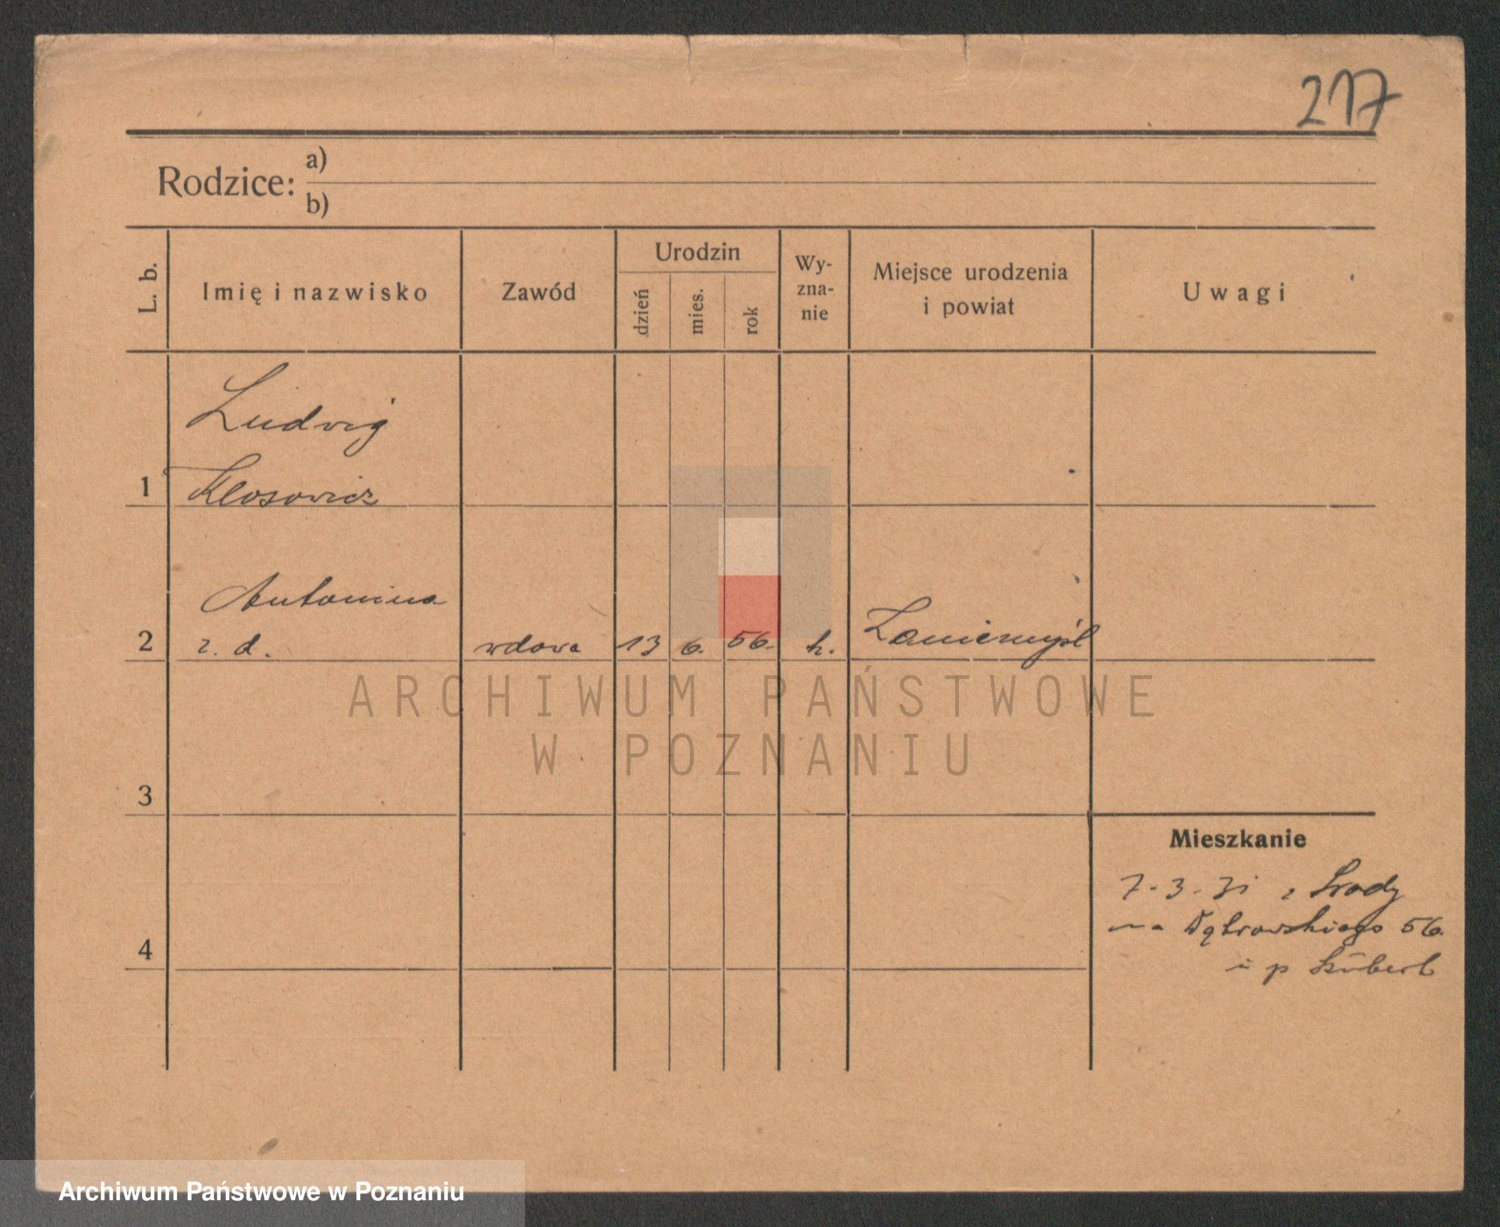 217
Rodzice: a)
b)
L. b.
Imię i nazwisko
Zawód
Urodzin
dzień
mies.
rok
Wy-
zna-
nie
Miejsce urodzenia
i powiat
Uwagi
Ludwig
1 Klosowicz
Antonina
2 z. d. wdowa 13 6. 56. k. Zaniemyśl
ARCHIWUM PAŃSTWOWE
W POZNANIU
3
Mieszkanie
7-3-31 z Środy
na Dąbrowskiego 56.
4
i p
Archiwum Państwowe w Poznaniu